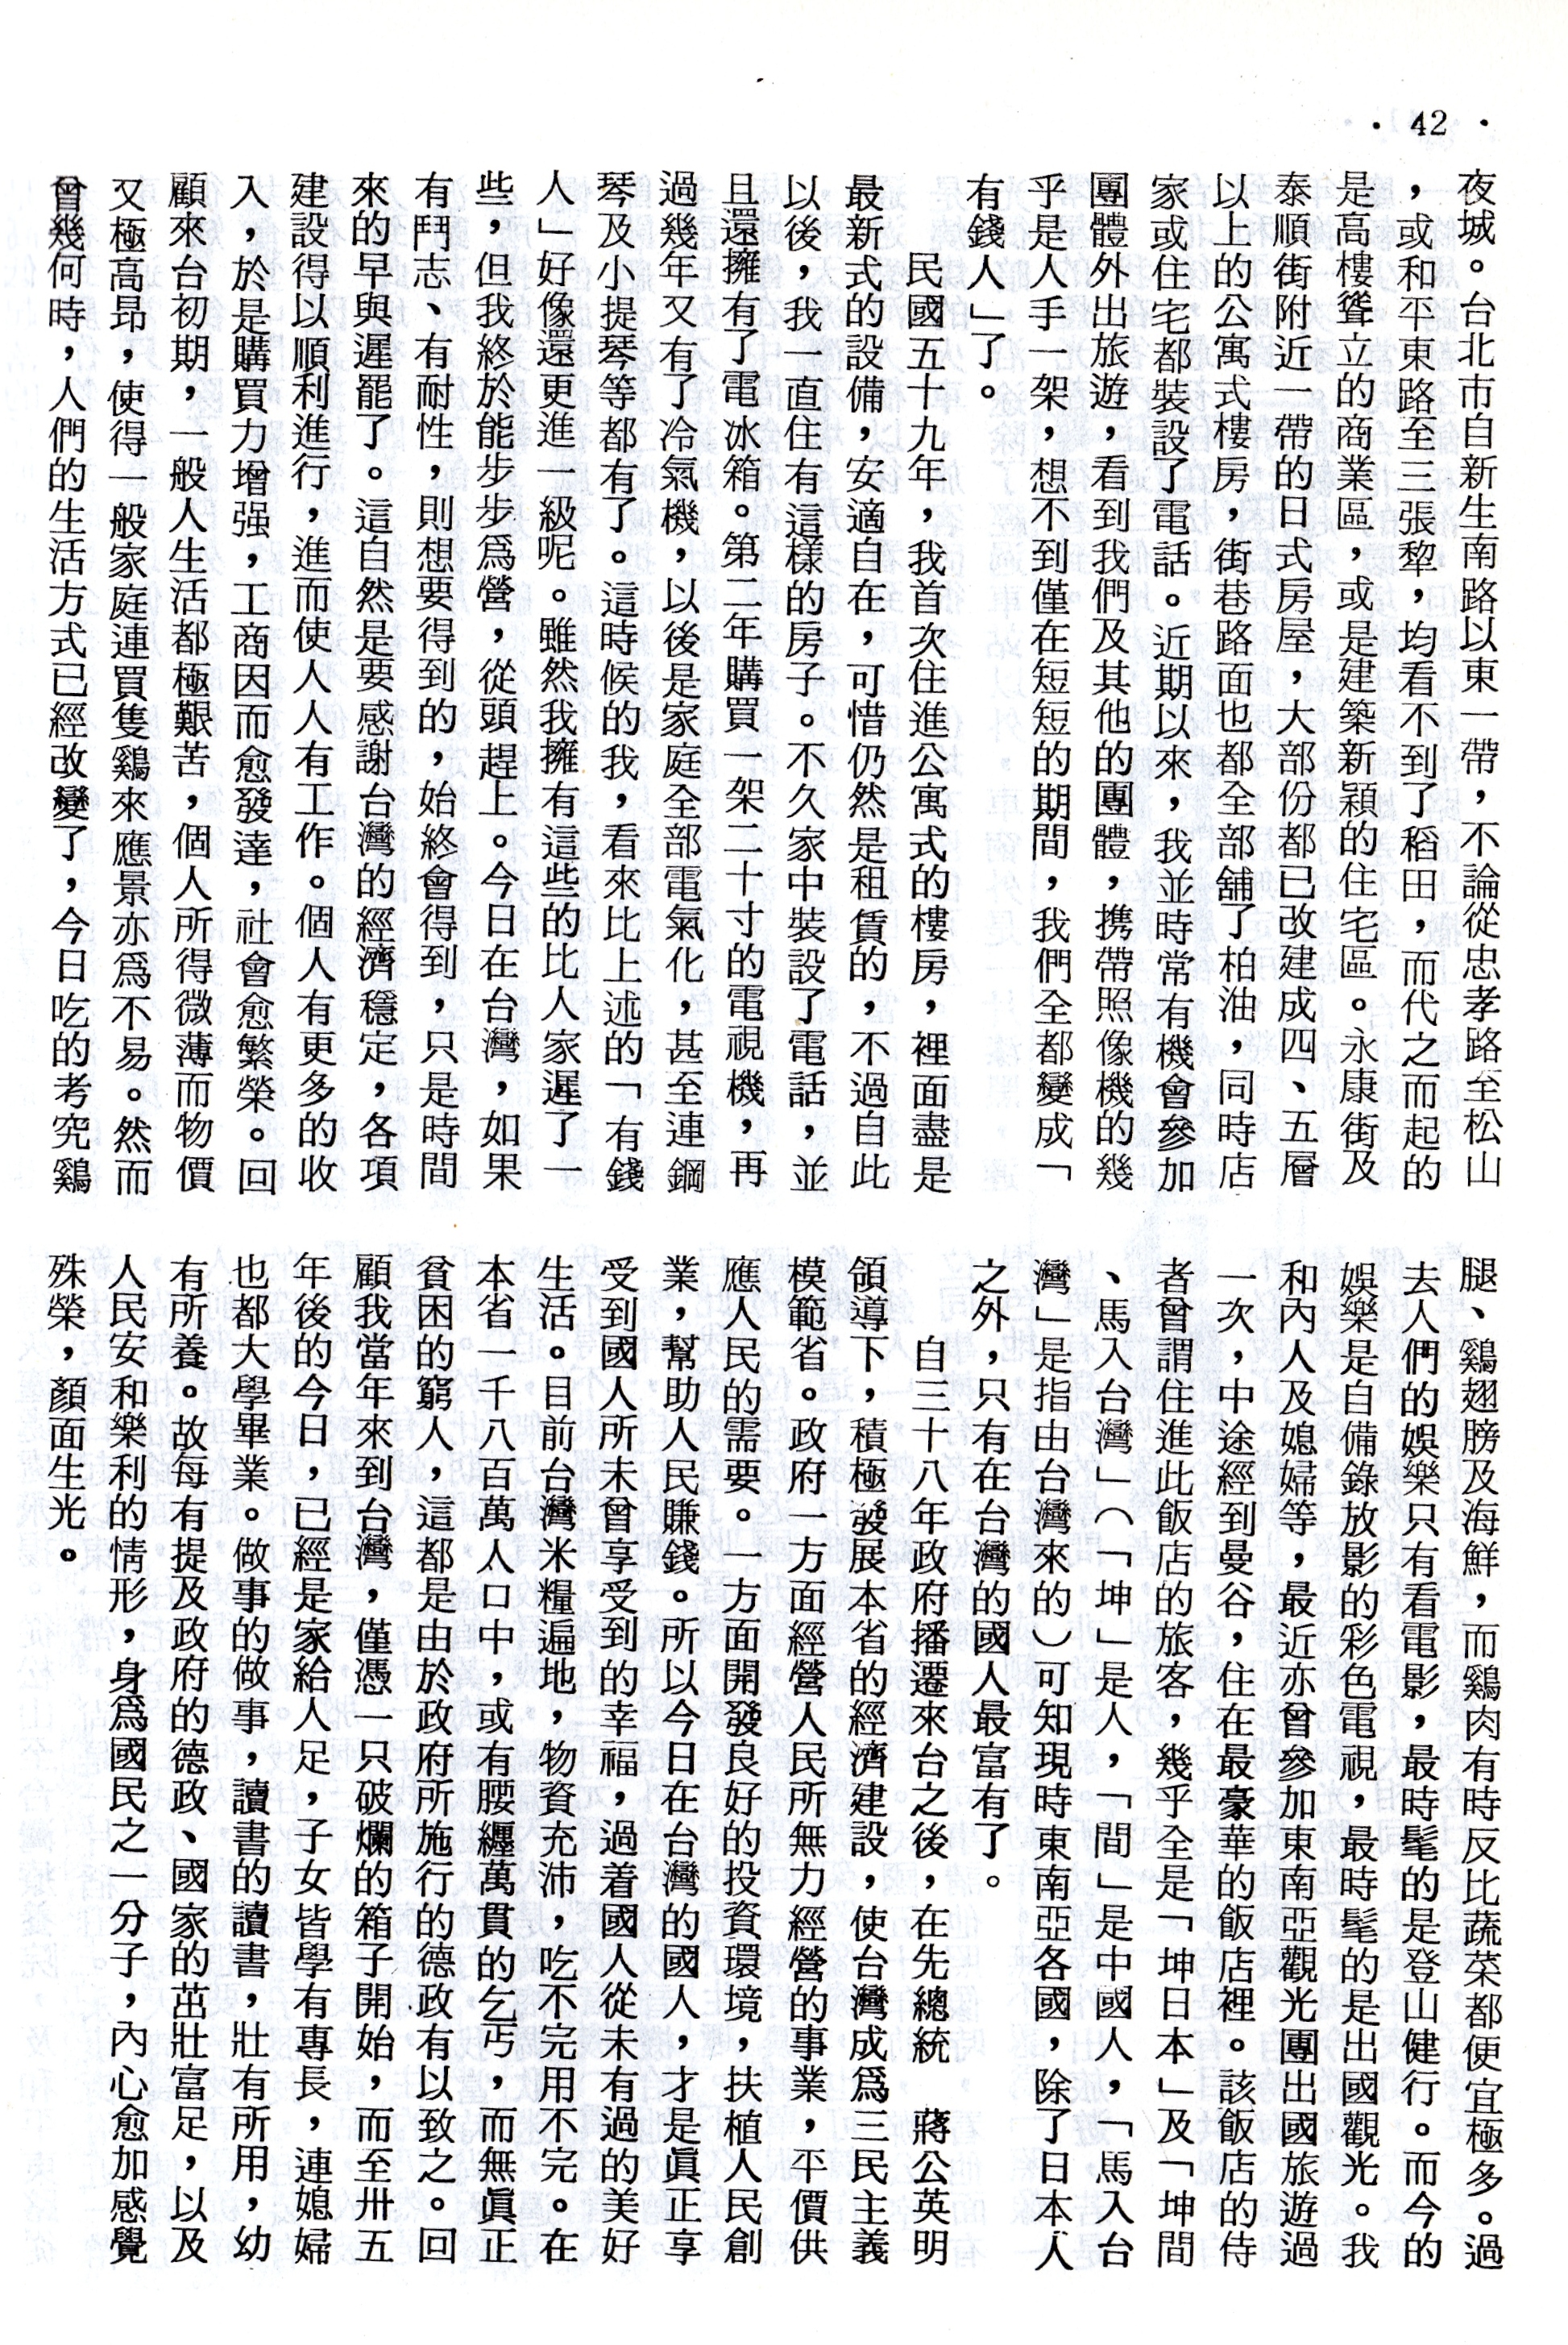 · 42 ·
夜城。台北市自新生南路以東一帶，不論從忠孝路至松山
，或和平東路至三張犂，均看不到了稻田，而代之而起的
是高樓聳立的商業區，或是建築新穎的住宅區。永康街及
泰順街附近一帶的日式房屋，大部份都已改建成四、五層
以上的公寓式樓房，街巷路面也都全部舖了柏油，同時店
家或住宅都裝設了電話。近期以來，我並時常有機會參加
團體外出旅遊，看到我們及其他的團體，携帶照像機的幾
乎是人手一架，想不到僅在短短的期間，我們全都變成「
有錢人」了。
民國五十九年，我首次住進公寓式的樓房，裡面盡是
最新式的設備，安適自在，可惜仍然是租賃的，不過自此
以後，我一直住有這樣的房子。不久家中裝設了電話，並
且還擁有了電冰箱。第二年購買一架二十寸的電視機，再
過幾年又有了冷氣機，以後是家庭全部電氣化，甚至連鋼
琴及小提琴等都有了。這時候的我，看來比上述的「有錢
人」好像還更進一級呢。雖然我擁有這些的比人家遲了一
些，但我終於能步步爲營，從頭趕上。今日在台灣，如果
有鬥志、有耐性，則想要得到的，始終會得到，只是時間
來的早與遲罷了。這自然是要感謝台灣的經濟穩定，各項
建設得以順利進行，進而使人人有工作。個人有更多的收
入，於是購買力增强，工商因而愈發達，社會愈繁榮。回
顧來台初期，一般人生活都極艱苦，個人所得微薄而物價
又極高昂，使得一般家庭連買隻鷄來應景亦爲不易。然而
曾幾何時，人們的生活方式已經改變了，今日吃的考究鷄
腿、鷄翅膀及海鮮，而鷄肉有時反比蔬菜都便宜極多。過
去人們的娛樂只有看電影，最時髦的是登山健行。而今的
娛樂是自備錄放影的彩色電視，最時髦的是出國觀光。我
和內人及媳婦等，最近亦曾參加東南亞觀光團出國旅遊過
一次，中途經到曼谷，住在最豪華的飯店裡。該飯店的侍
者曾謂住進此飯店的旅客，幾乎全是「坤日本」及「坤間
、馬入台灣」（「坤」是人，「間」是中國人，「馬入台
灣」是指由台灣來的）可知現時東南亞各國，除了日本人
之外，只有在台灣的國人最富有了。
自三十八年政府播遷來台之後，在先總統　蔣公英明
領導下，積極發展本省的經濟建設，使台灣成爲三民主義
模範省。政府一方面經營人民所無力經營的事業，平價供
應人民的需要。一方面開發良好的投資環境，扶植人民創
業，幫助人民賺錢。所以今日在台灣的國人，才是眞正享
受到國人所未曾享受到的幸福，過着國人從未有過的美好
生活。目前台灣米糧遍地，物資充沛，吃不完用不完。在
本省一千八百萬人口中，或有腰纏萬貫的乞丐，而無眞正
貧困的窮人，這都是由於政府所施行的德政有以致之。回
顧我當年來到台灣，僅憑一只破爛的箱子開始，而至卅五
年後的今日，已經是家給人足，子女皆學有專長，連媳婦
也都大學畢業。做事的做事，讀書的讀書，壯有所用，幼
有所養。故每有提及政府的德政、國家的茁壯富足，以及
人民安和樂利的情形，身爲國民之一分子，內心愈加感覺
殊榮，顏面生光。